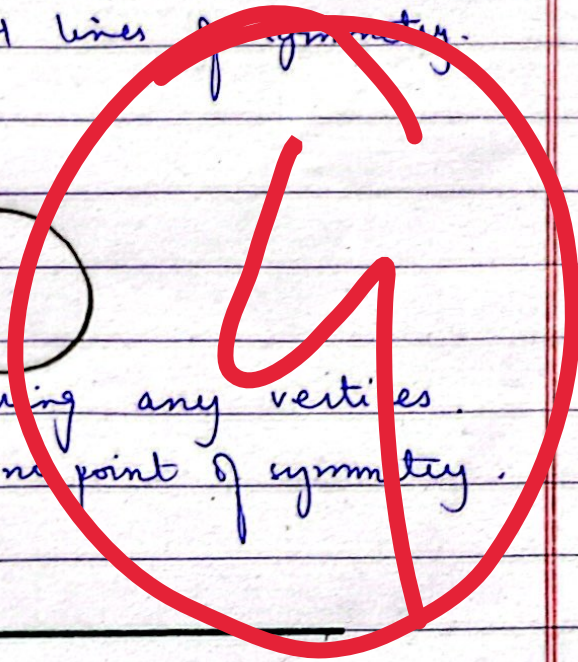 lines of symmetry.
4
any vertices.
point of symmetry.